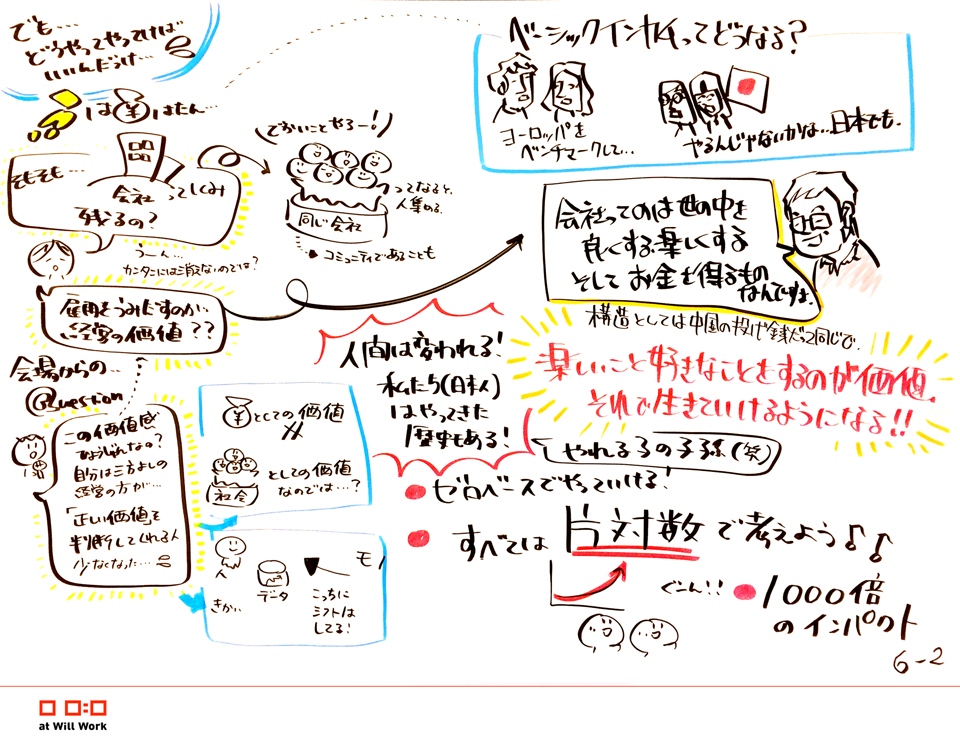 でも…
どうやってやってけば
いいんだっけ…
は ¥ はたん…
そもそも…
会社ってしくみ
残るの?
うーん…
カンタンには消えないのでは?
でかいことやろー!
ってなると、
人集める
同じ会社
コミュニティであることも
雇用をうみだすのが
経営の価値??
会場からの…
@uestion
この価値感
自分は三方よしの
経営の方が…
「正しい価値」を
判断してくれる人
少なくなった…
¥としての価値
社会
としての価値
なのでは…?
人
きかい
データ
モノ
こっちに
シフトは
してる!
ベーシックインカムってどうなる?
ヨーロッパを
ベンチマークして…
やるんじゃないかな…日本でも。
会社ってのは世の中を
良くする・楽しくする
そして お金を得るもの
なんですよ。
構造としては中国の投げ銭だって同じで。
人間は変われる!
私たち(日本人)
はやってきた
歴史もある!
楽しいこと好きなことをするのが価値。
それで生きていけるようになる!!
やれる子の子孫(笑)
ゼロベースでやっていける!
すべては 片対数で考えよう♪♪
ぐーん!!
1000倍
のインパクト
6-2
at Will Work